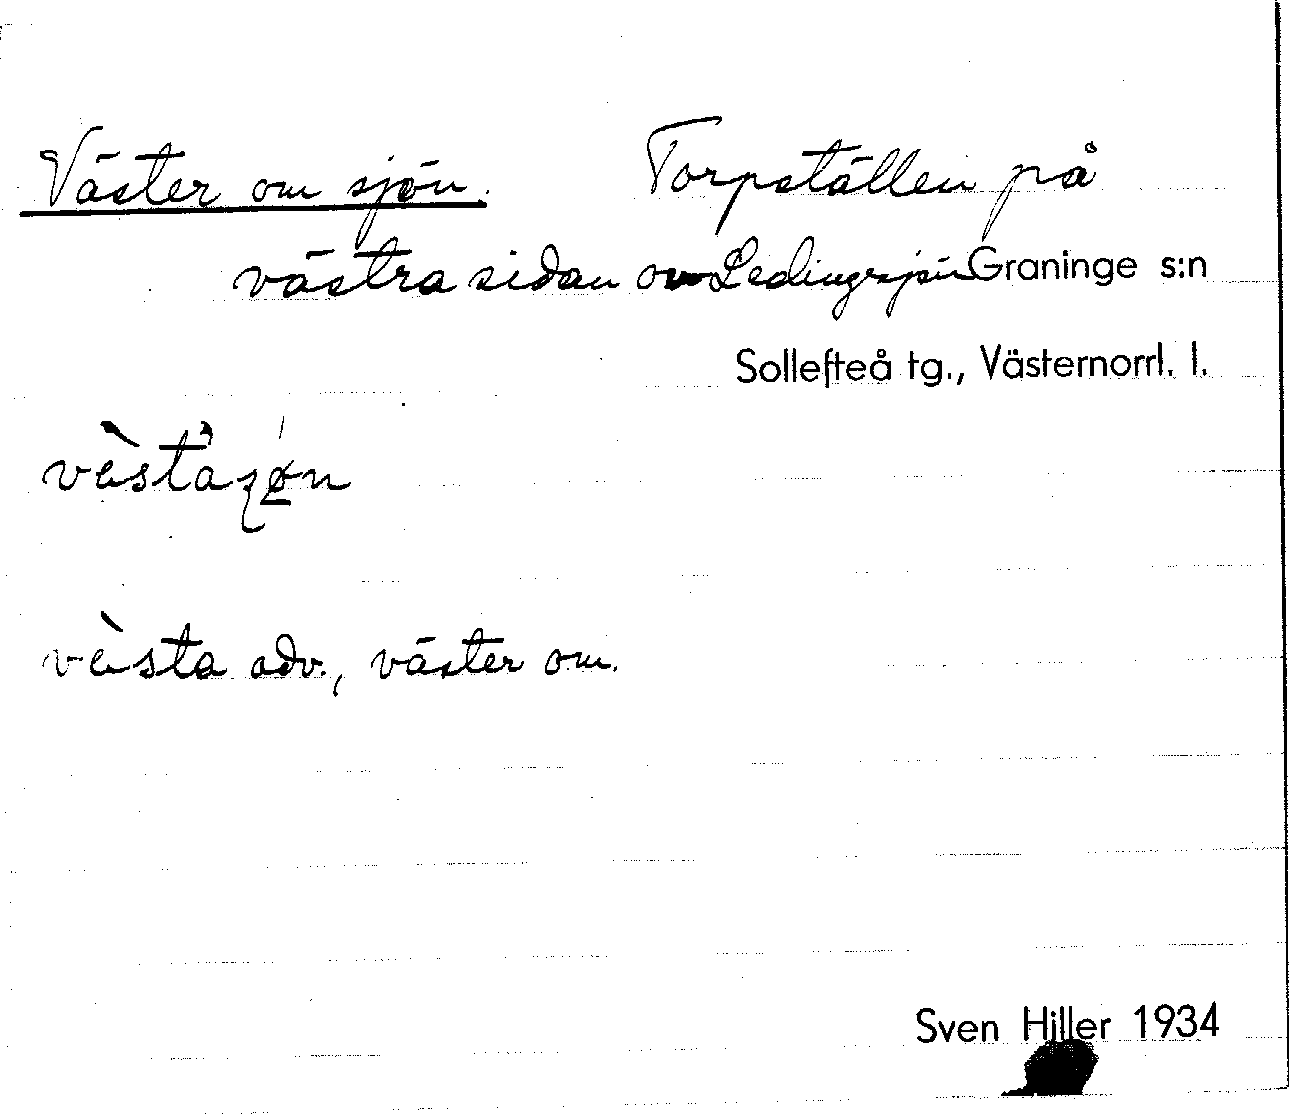 Väster om sjön. Torpställen på
västra sidan om Ledingsjön Graninge s:n
Sollefteå tg., Västernorrl. l.
vèsta adv., väster om.
Sven Hiller 1934